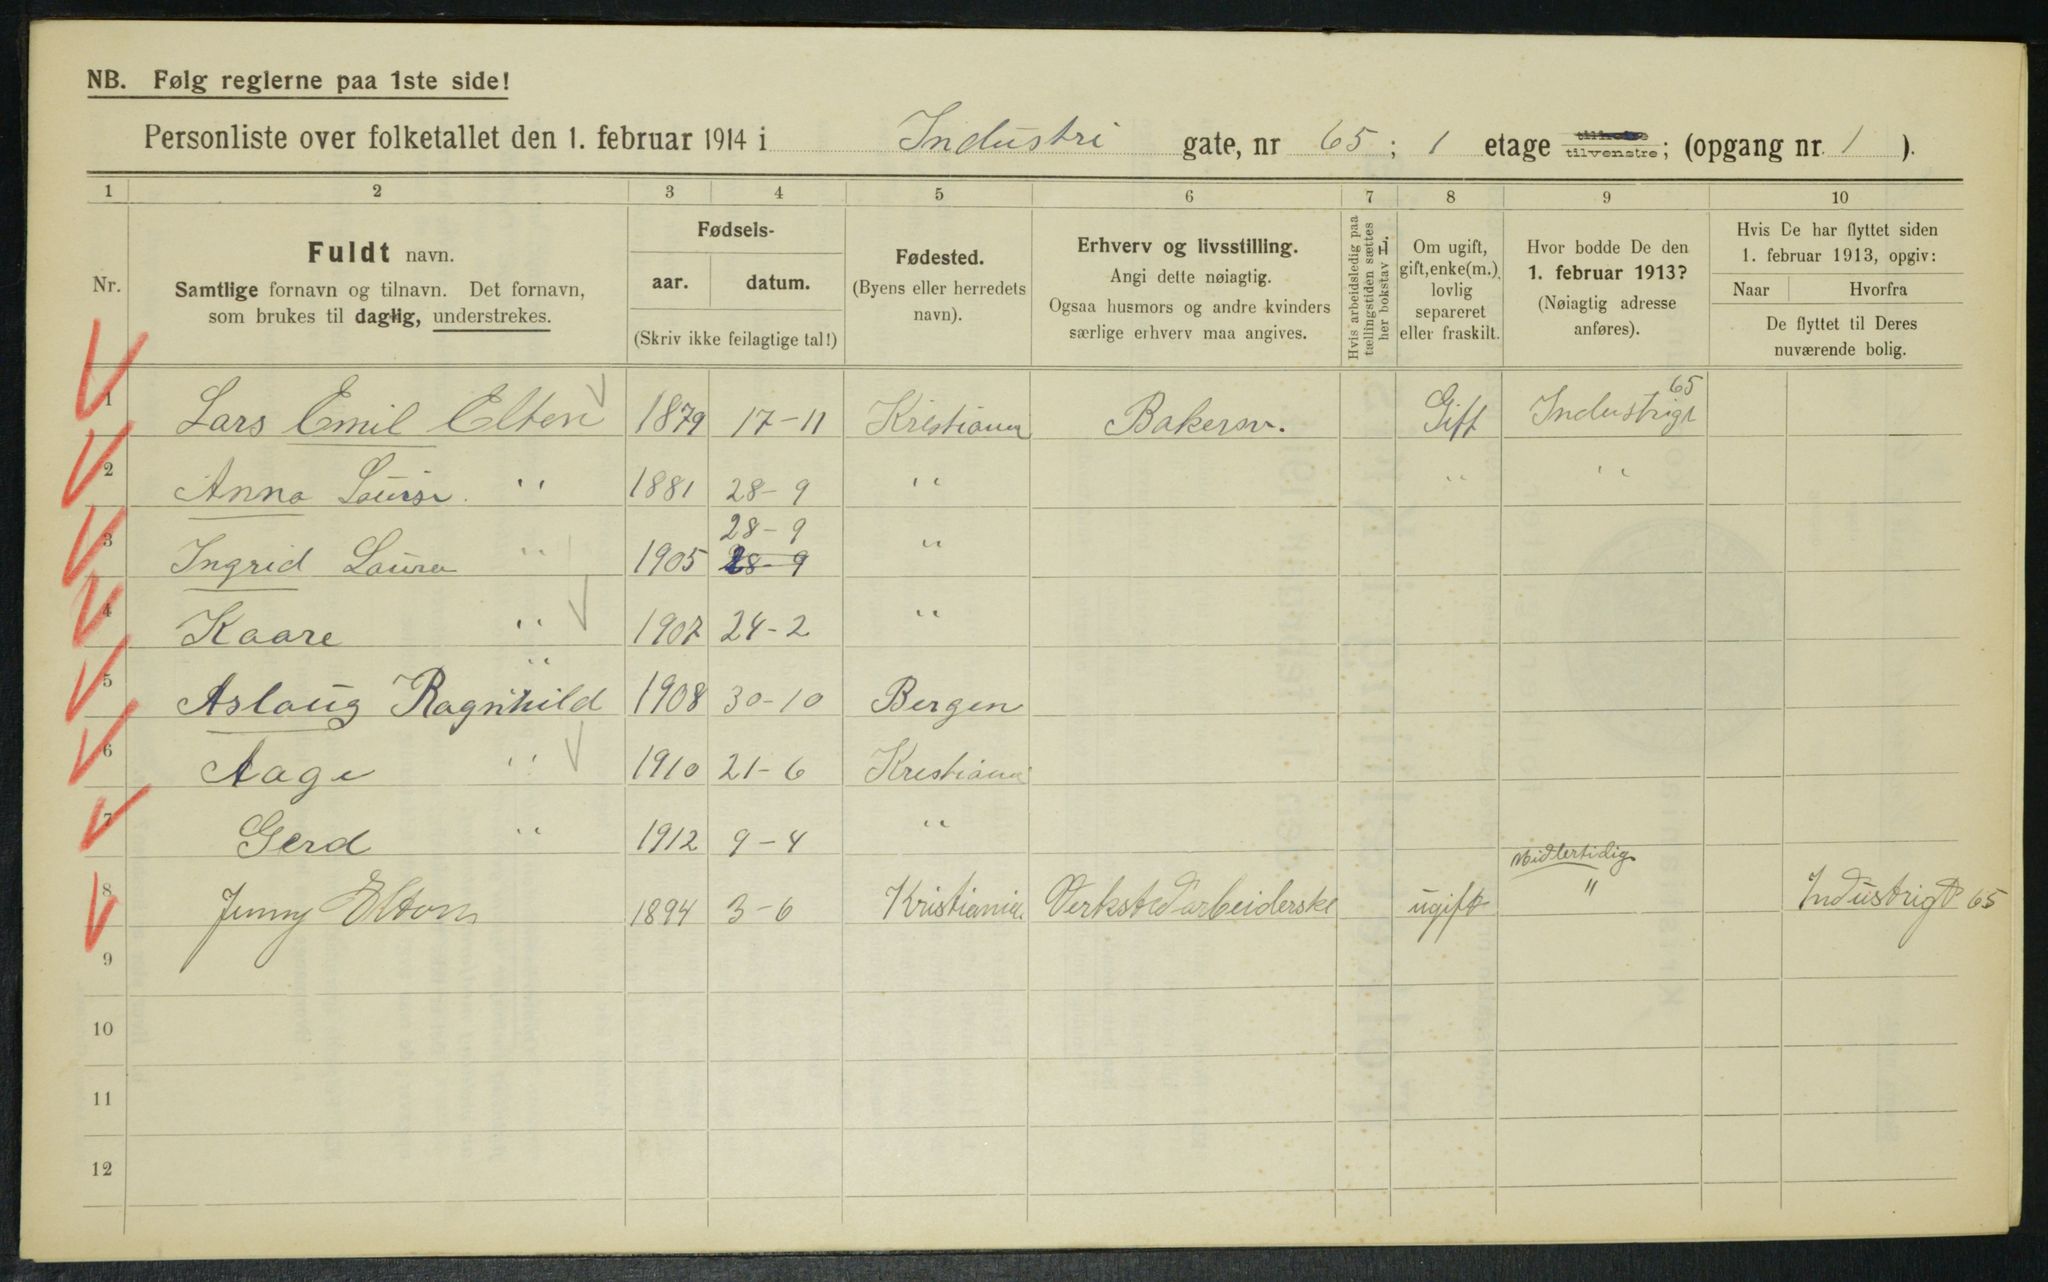 NB. Følg reglerne paa 1ste side!
Personliste over folketallet den 1. februar 1914 i Industri gate, nr 65; 1 etage tilvenstre; (opgang nr. 1).
1 2 3 4 5 6 7 8 9 10
Nr.
Fuldt navn.
Samtlige fornavn og tilnavn. Det fornavn,
som brukes til daglig, understrekes.
Fødsels-
aar. datum.
(Skriv ikke feilagtige tal!)
Fødested.
(Byens eller herredets
navn).
Erhverv og livsstilling.
Angi dette nøiagtig.
Ogsaa husmors og andre kvinders
særlige erhverv maa angives.
Hvis arbeidsledig paa
tællingstiden sættes
her bokstav l
Om ugift,
gift, enke(m.),
lovlig
separeret
eller fraskilt.
Hvor bodde De den
1. februar 1913?
(Nøiagtig adresse
anføres).
Hvis De har flyttet siden
1. februar 1913, opgiv:
Naar Hvorfra
De flyttet til Deres
nuværende bolig.
1 Lars Emil Elton 1879 17-11 Kristiania Bakersv. Gift Industrigt 65
2 Anna Louise " 1881 28-9 " " "
28-9
3 Ingrid Laura " 1905 28-9 "
4 Kaare " 1907 24-2 "
5 Aslaug Ragnhild " 1908 30-10 Bergen
6 Aage " 1910 21-6 Kristiania
7 Gerd " 1912 9-4 "
Midlertidig
8 Jenny Elton 1894 3-6 Kristiania Verkstedarbeiderske ugift " Industrigt 65
9
10
11
12